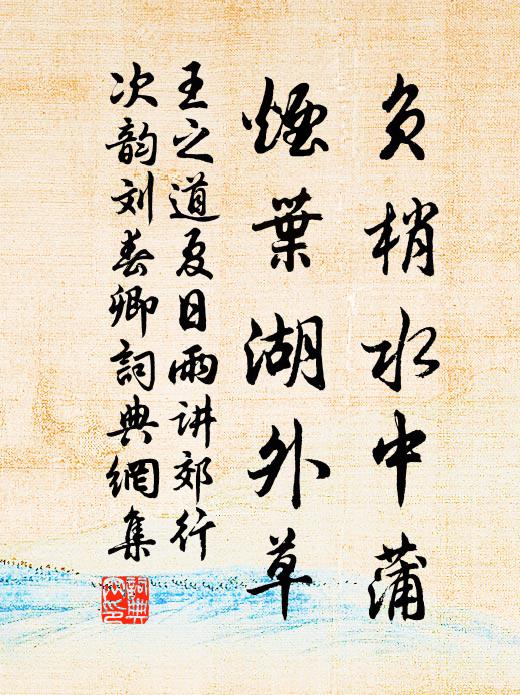 负梢水中蒲
煙葉湖外草
王之道夏日雨讲郊行
次韵刘春卿詞典網集